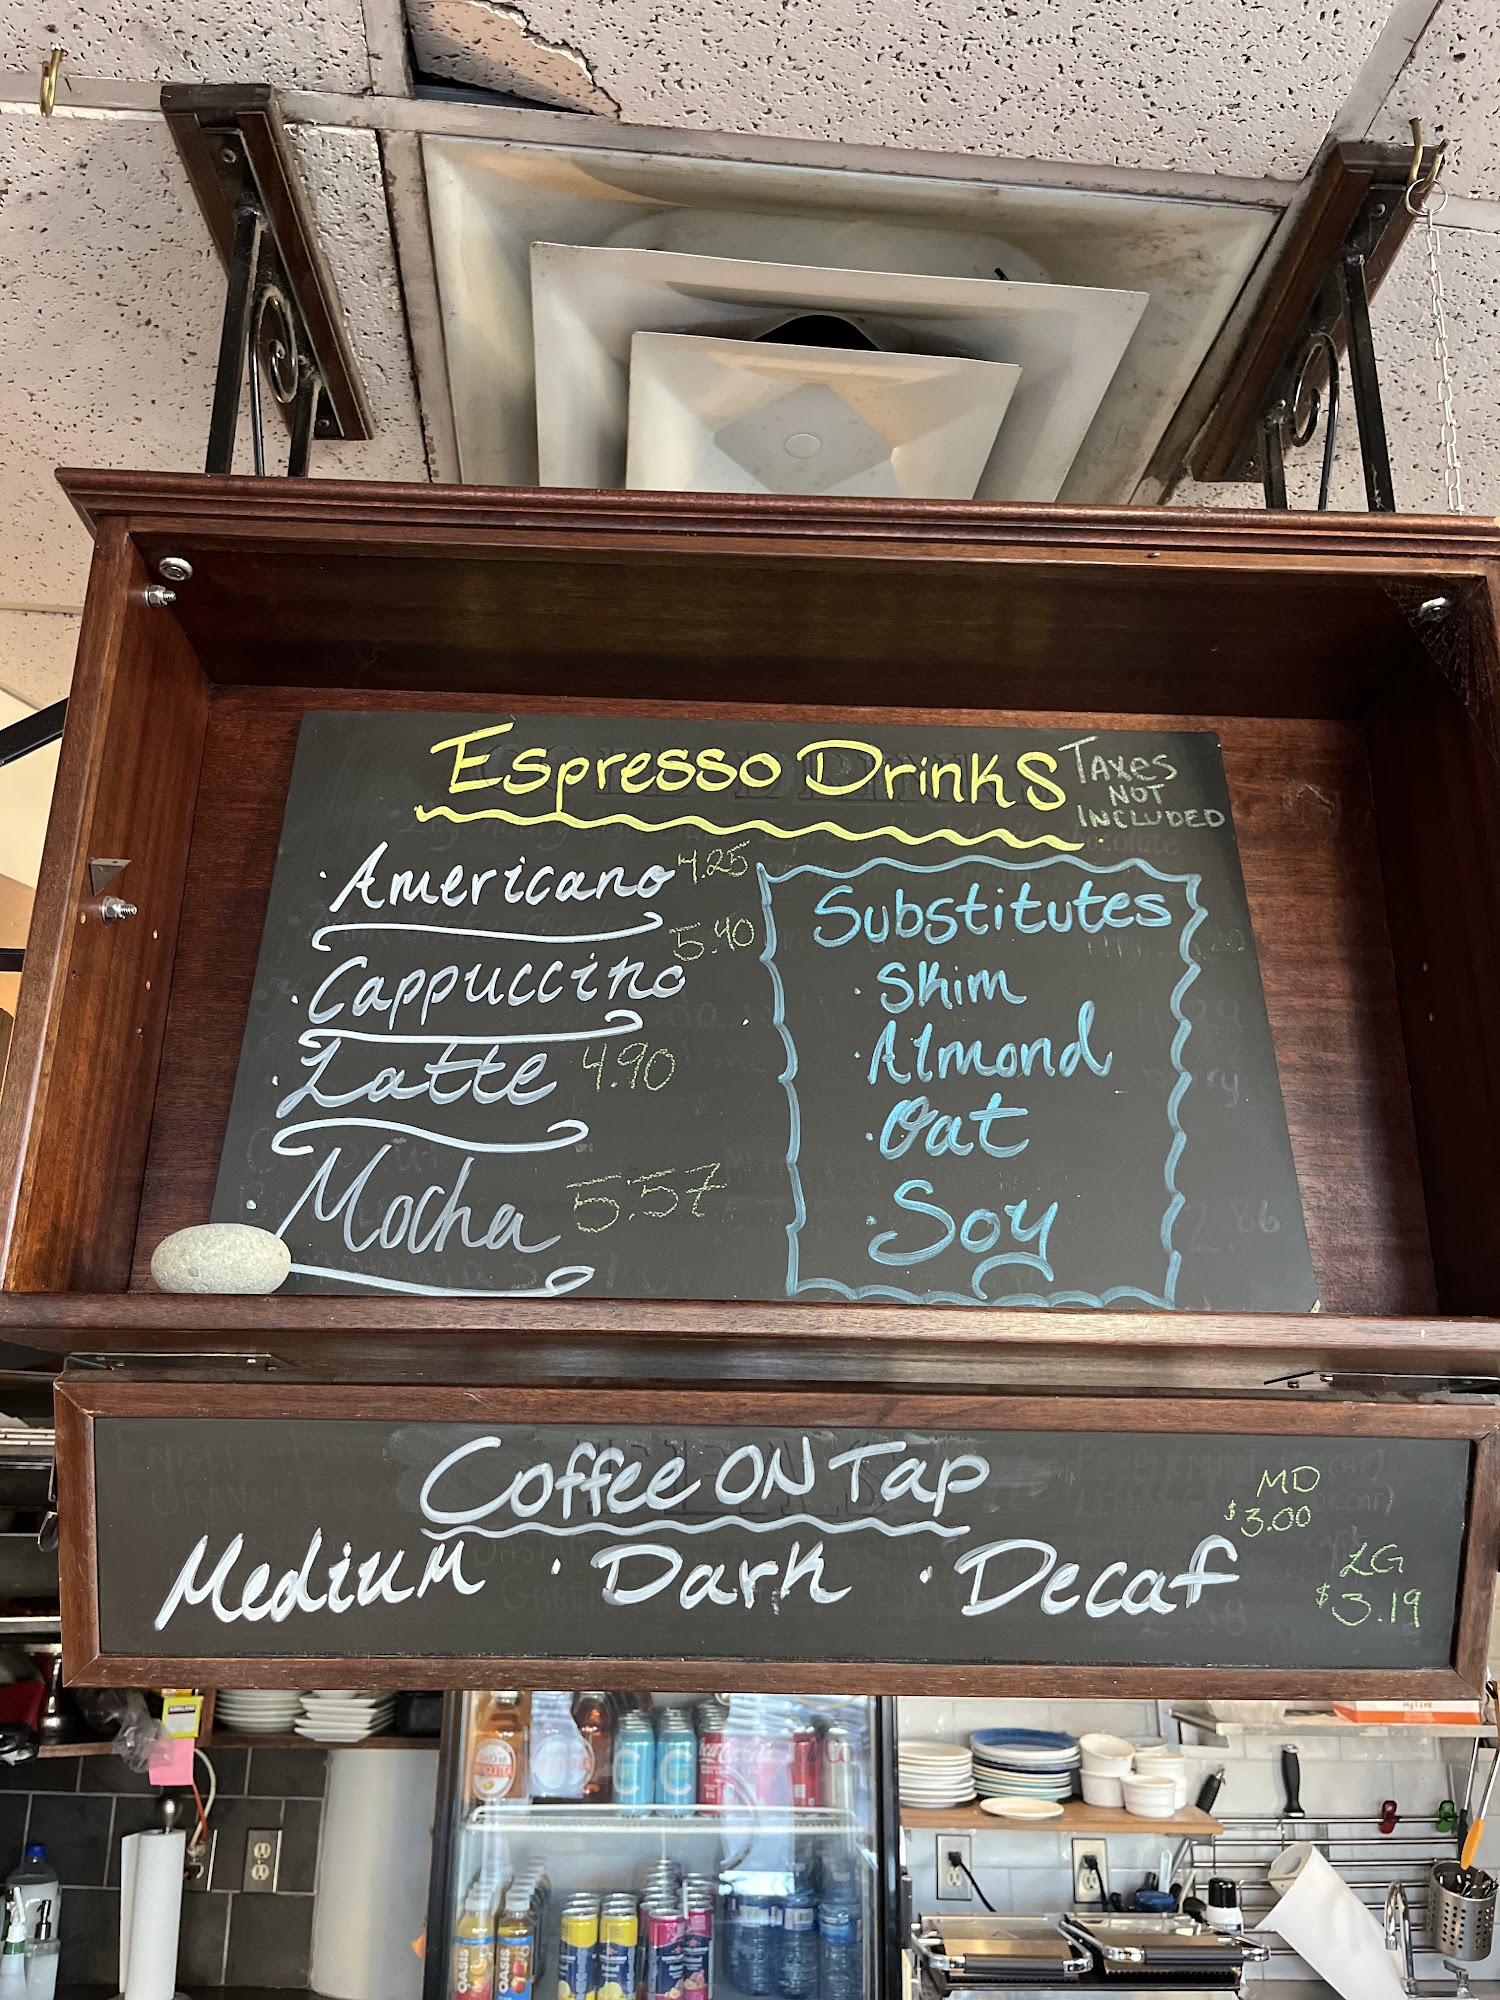 Espresso Drinks
Taxes
NOT
INCLUDED
· Americano 4.25
· Cappuccino 5.40
· Latte 4.90
· Mocha 5.57
Substitutes
· Skim
· Almond
· Oat
· Soy
Coffee ON Tap
Medium · Dark · Decaf
MD
$3.00
LG
$3.19
OASIS
OASIS